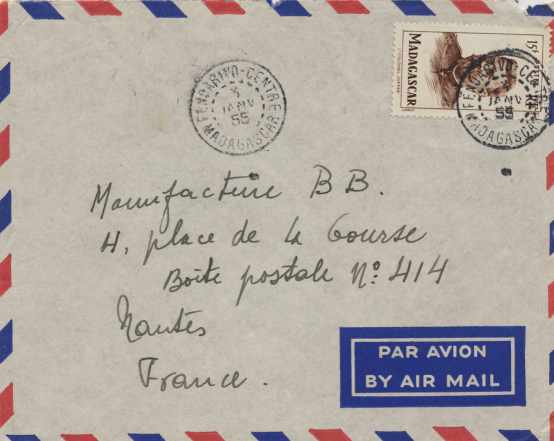 15F
MADAGASCAR
FENOARIVO-CENTRE
3
JANV
55
MADAGASCAR
FENOARIVO-CENTRE
3
JANV
55
MADAGASCAR
Manufacture B B.
4, place de la Bourse
Boîte postale Nº 414
Nantes
France.
PAR AVION
BY AIR MAIL